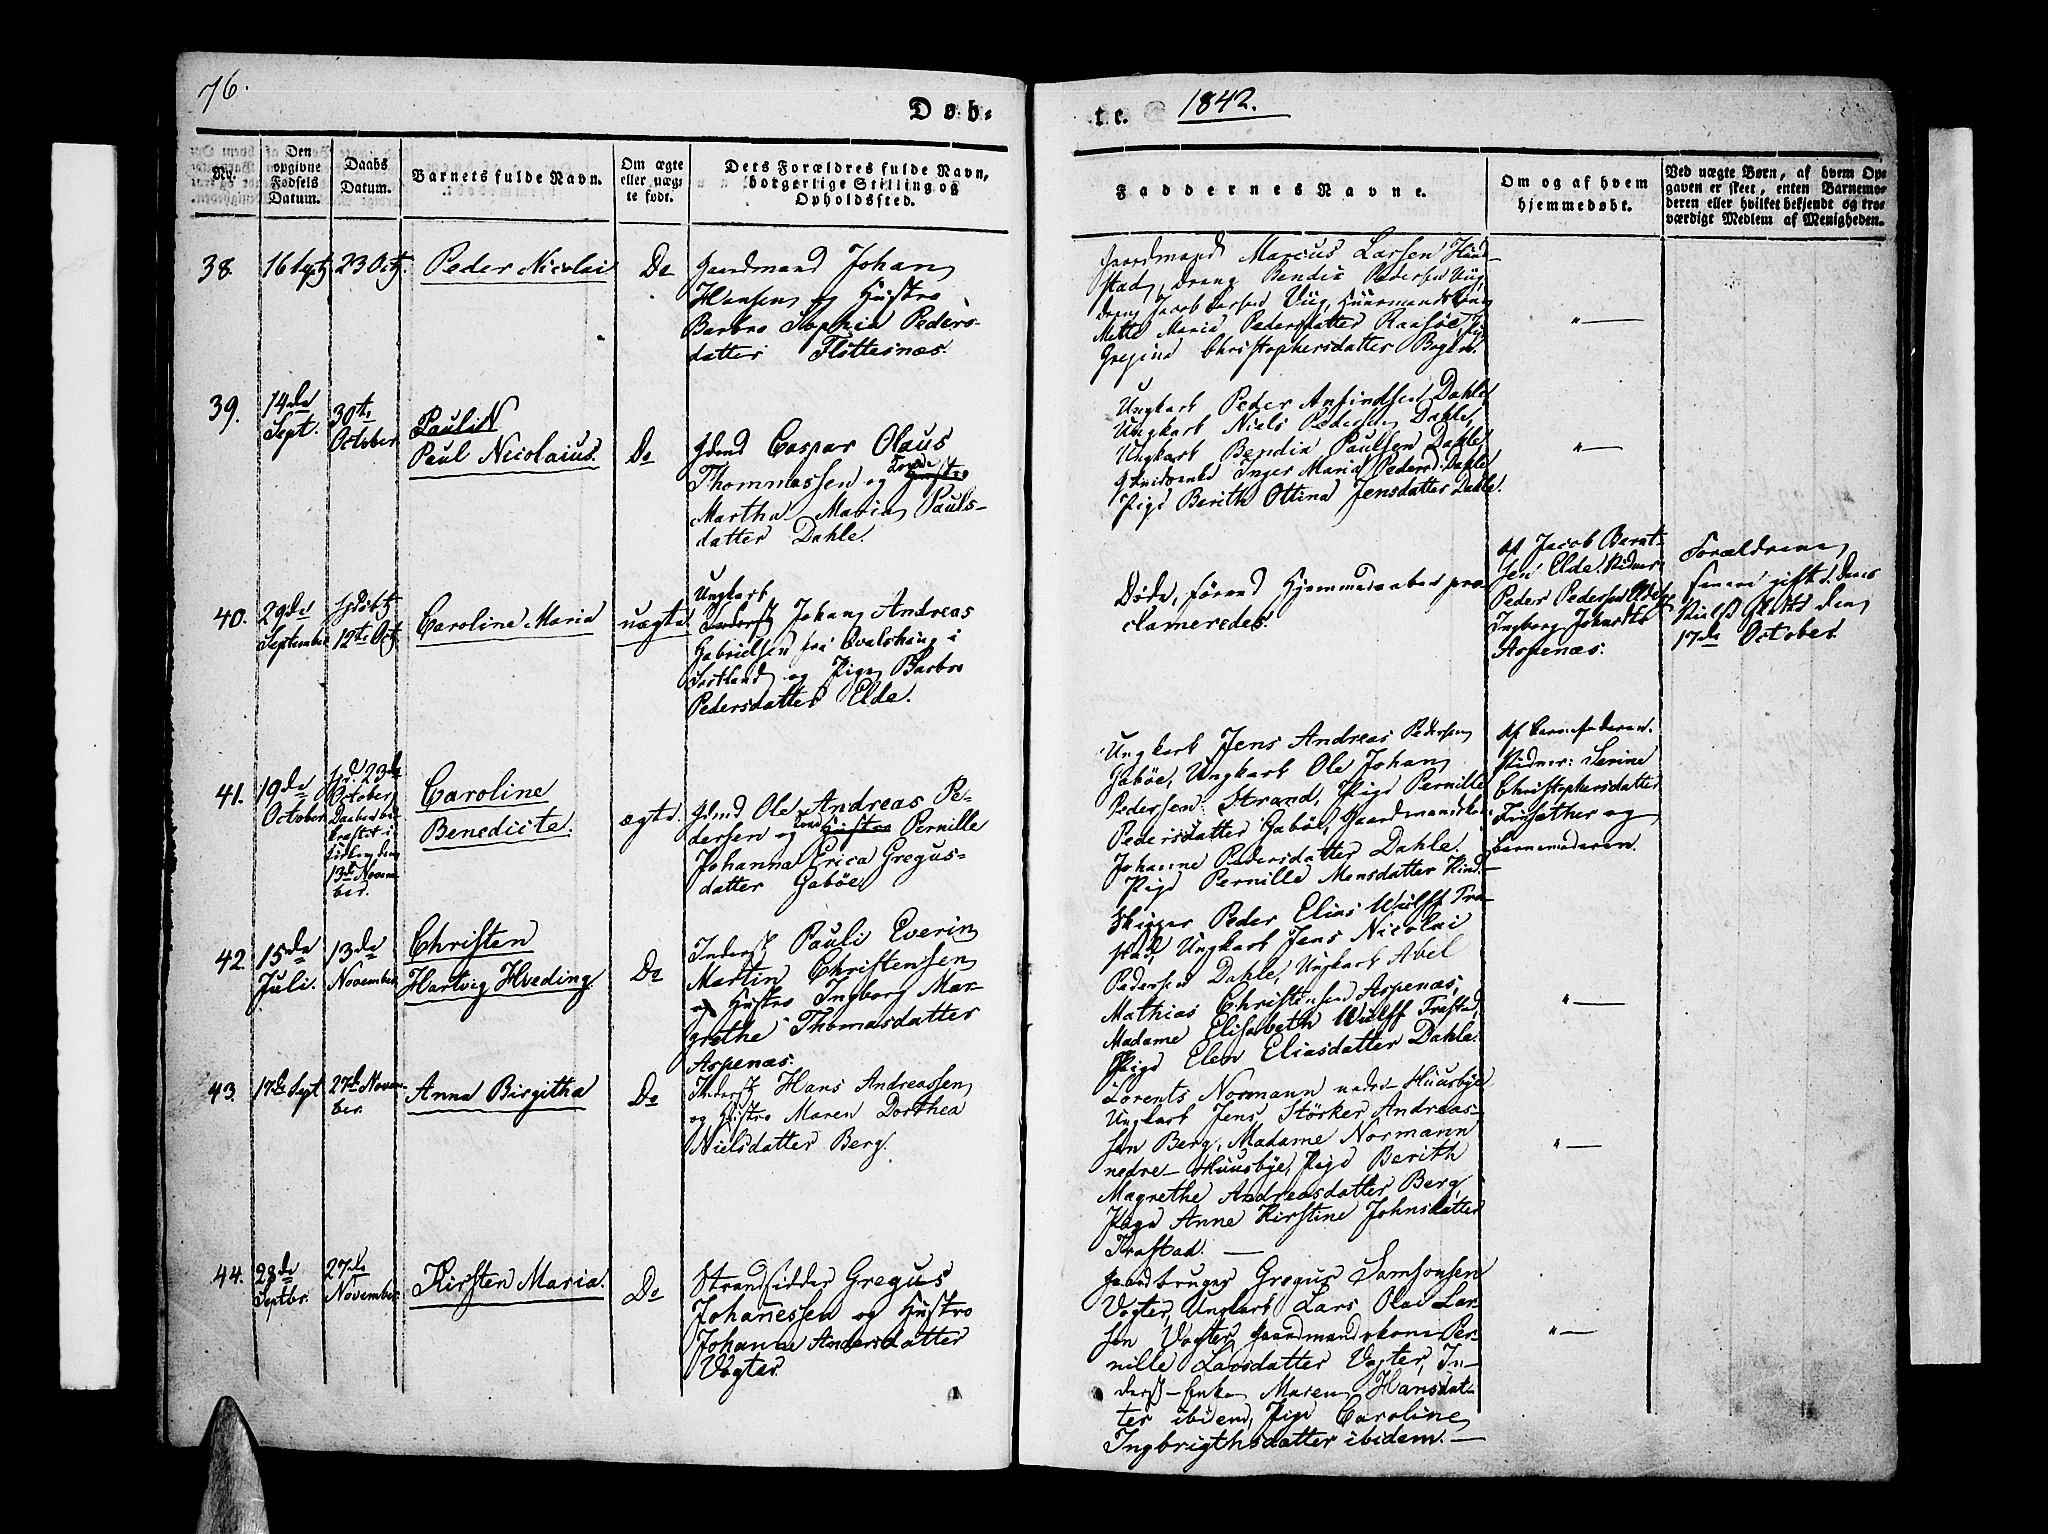 76.
Døb-
te.
1842.
No.
Den
opgivne
Fødsels
Datum.
Daabs
Datum.
Barnets fulde Navn.
Om ægte
eller uæg-
te født.
Dets Forældres fulde Navn,
borgerlige Stilling og
Opholdssted.
Faddernes Navne.
Om og af hvem
hjemmedøbt.
Ved uægte Børn, af hvem Op-
gaven er skeet, enten Barnemo-
deren eller hvilket bekjendt og tro-
værdigt Medlem af Menigheden.
38.
16 Sept
23 Oct
Peder Nicolai
Do
Gaardmand Johan
Hansen og Hustro
Barbro Sophia Peders-
datter Flottesnæs.
Gaardmand Marcus Larsen
Dreng Bendix Pedersen
Dreng Jacob Larsen
Mette Maria Pedersdatter
Christophersdatter Bogen.
"—
39.
14de
Sept.
30te
October
Pauli N
Paul Nicolaius.
Do
Gdmd Caspar Olaus
Thommassen og Hustro
Martha Maria Pauls-
datter Dahle.
Ungkarl Peder Anfindsen Dahle
Ungkarl Niels Pedersen Dahle,
Ungkarl Bendix Paulsen Dahle
Inger Maria Pedersd. Dahle
Pige Berith Ottina Jensdatter Dahle.
"—
40.
29de
September
Hjdøbt
12te Oct.
Caroline Maria
uægte
Ungkarl
Johan Andreas
Gabrielsen fra Kvalshaug i
Sortland og Pige Barbro
Pedersdatter Elde.
Døde, førend Hjemmedaaben pro-
clameredes.
Af Jacob Bernt-
sen Elde. Vidner:
Peder Pedersen Elde
Ingborg Johnsdtr
Aspenæs.
Forældrene
senere gift d.
17de October.
41.
19de
October
Hjd. 23de
October
Daaben be-
kræftet i
Kirken den
13de Novem-
ber.
Caroline
Benedicte.
ægte
Gdmd Ole Andreas Pe-
dersen og Hustro Pernille
Johanna Erica Gregus-
datter Gabøe
Ungkarl Jens Andreas Pedersen
Gabøe, Ungkarl Ole Johan
Pedersen Strand, Pige Pernille
Pedersdatter Gabøe, Gaardmandsko:
Johanne Pedersdatter Dahle.
Pige Pernille Monsdatter
Af Barnefaderen.
Vidner: Serine
Christophersdatter
Finsæther og
Barnemoderen.
42.
15de
Juli.
13de
November
Christen
Hartvig Hveding.
Do
Inderst Pauli Everin
Martin Christensen
og Hustro Ingborg Mar-
grethe Thomasdatter
Aspenæs.
Skipper Peder Elias Wulff Fra-
stad, Ungkarl Jens Nicolai
Pedersen Dahle, Ungkarl Abel
Mathias Christensen Aspenæs,
Madame Elisabeth Wulff Frasta,
Pige Elen Eliasdatter Dahle.
"—
43.
17de Sept
27de Novem-
ber.
Anna Birgitha
Do
Inderst Hans Andreassen
og Hustro Maren Dorthea
Nielsdatter Berg.
Lorents Normann nedre Huusbye
Ungkarl Jens Störker Andreas-
sen Berg, Madame Normann
nedre Huusbye, Pige Berith
Magrethe Andreasdatter Berg,
Pige Anne Kirstine Johnsdatter
Frastad. —
"—
44.
28de
Septbr.
27de
November.
Kirsten Maria.
Do
Strandsidder Gregus
Johanessen og Hustro
Johanna Andersdatter
Vogter.
Gaardbruger Gregus Samsonsen
Vogter, Ungkarl Lars Olai Lar-
sen Vogter, Gaardmandskone Per-
nille Larsdatter Vogter, In-
derst-Enke Maren Hansdat-
ter ibidem, Pige Caroline
Ingbrigthsdatter ibidem. —
"—